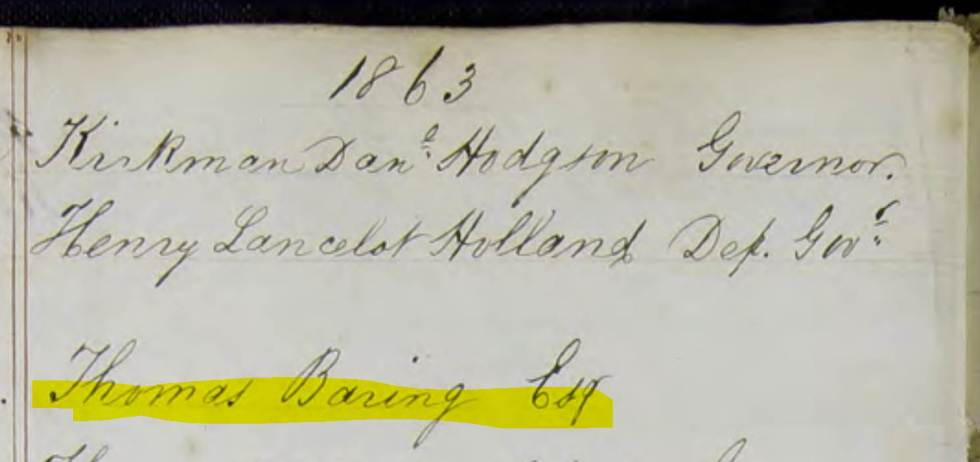 1863
Kirkman Danˡ. Hodgson Governor.
Henry Lancelot Holland Dep. Govʳ.
Thomas Baring Esq